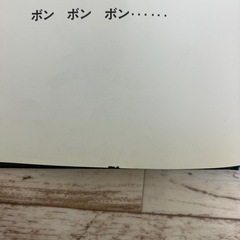 ボン　ボン　ボン‥‥‥